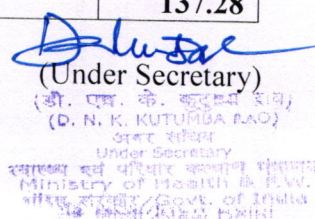 137.28
(Under Secretary)
(डी. एन. के. कुटुम्बा राव)
(D. N. K. KUTUMBA RAO)
अवर सचिव
Under Secretary
स्वास्थ्य एवं परिवार कल्याण मंत्रालय
Ministry of Health & F.W.
भारत सरकार/Govt. of India
नई दिल्ली/New Delhi